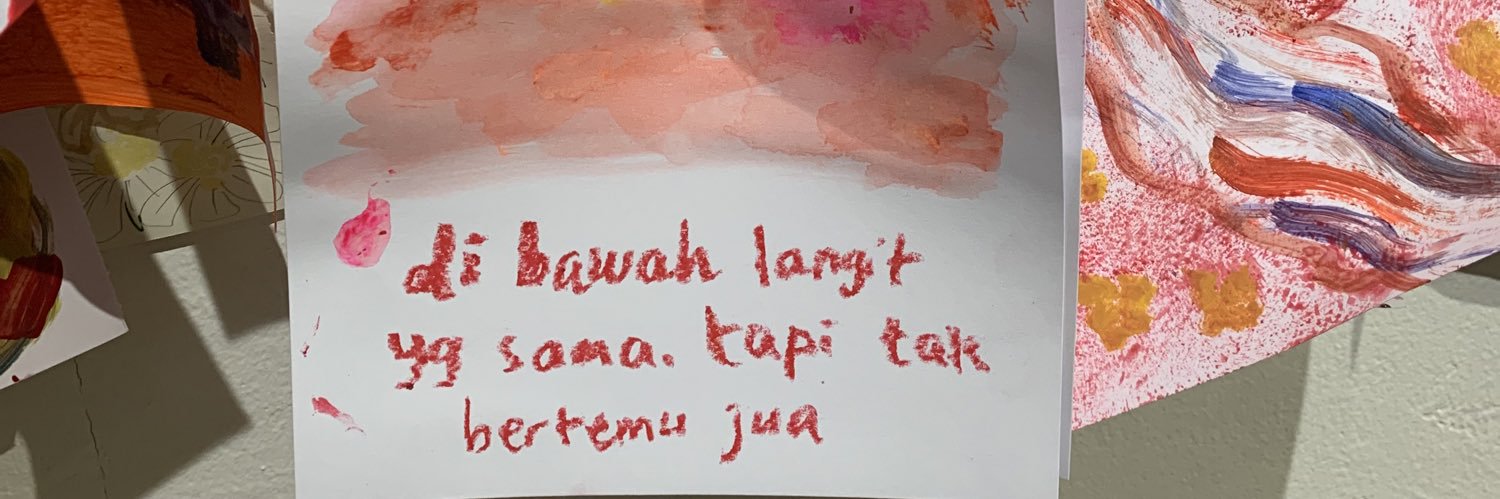 di bawah langit
yg sama. tapi tak
bertemu jua